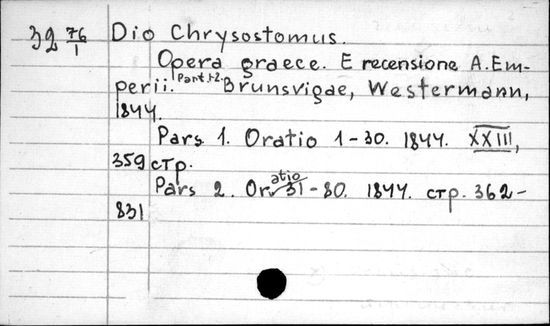 32 76/1 Dio Chrysostomus.
Opera graece. E recensione A. Em-
perii. Part. 1-2. Brunsvigae, Westermann,
1844.
Pars 1. Oratio 1-30. 1844. XXIII,
359 стр.
Pars 2. Oratio 31-80. 1844. стр. 362-
831